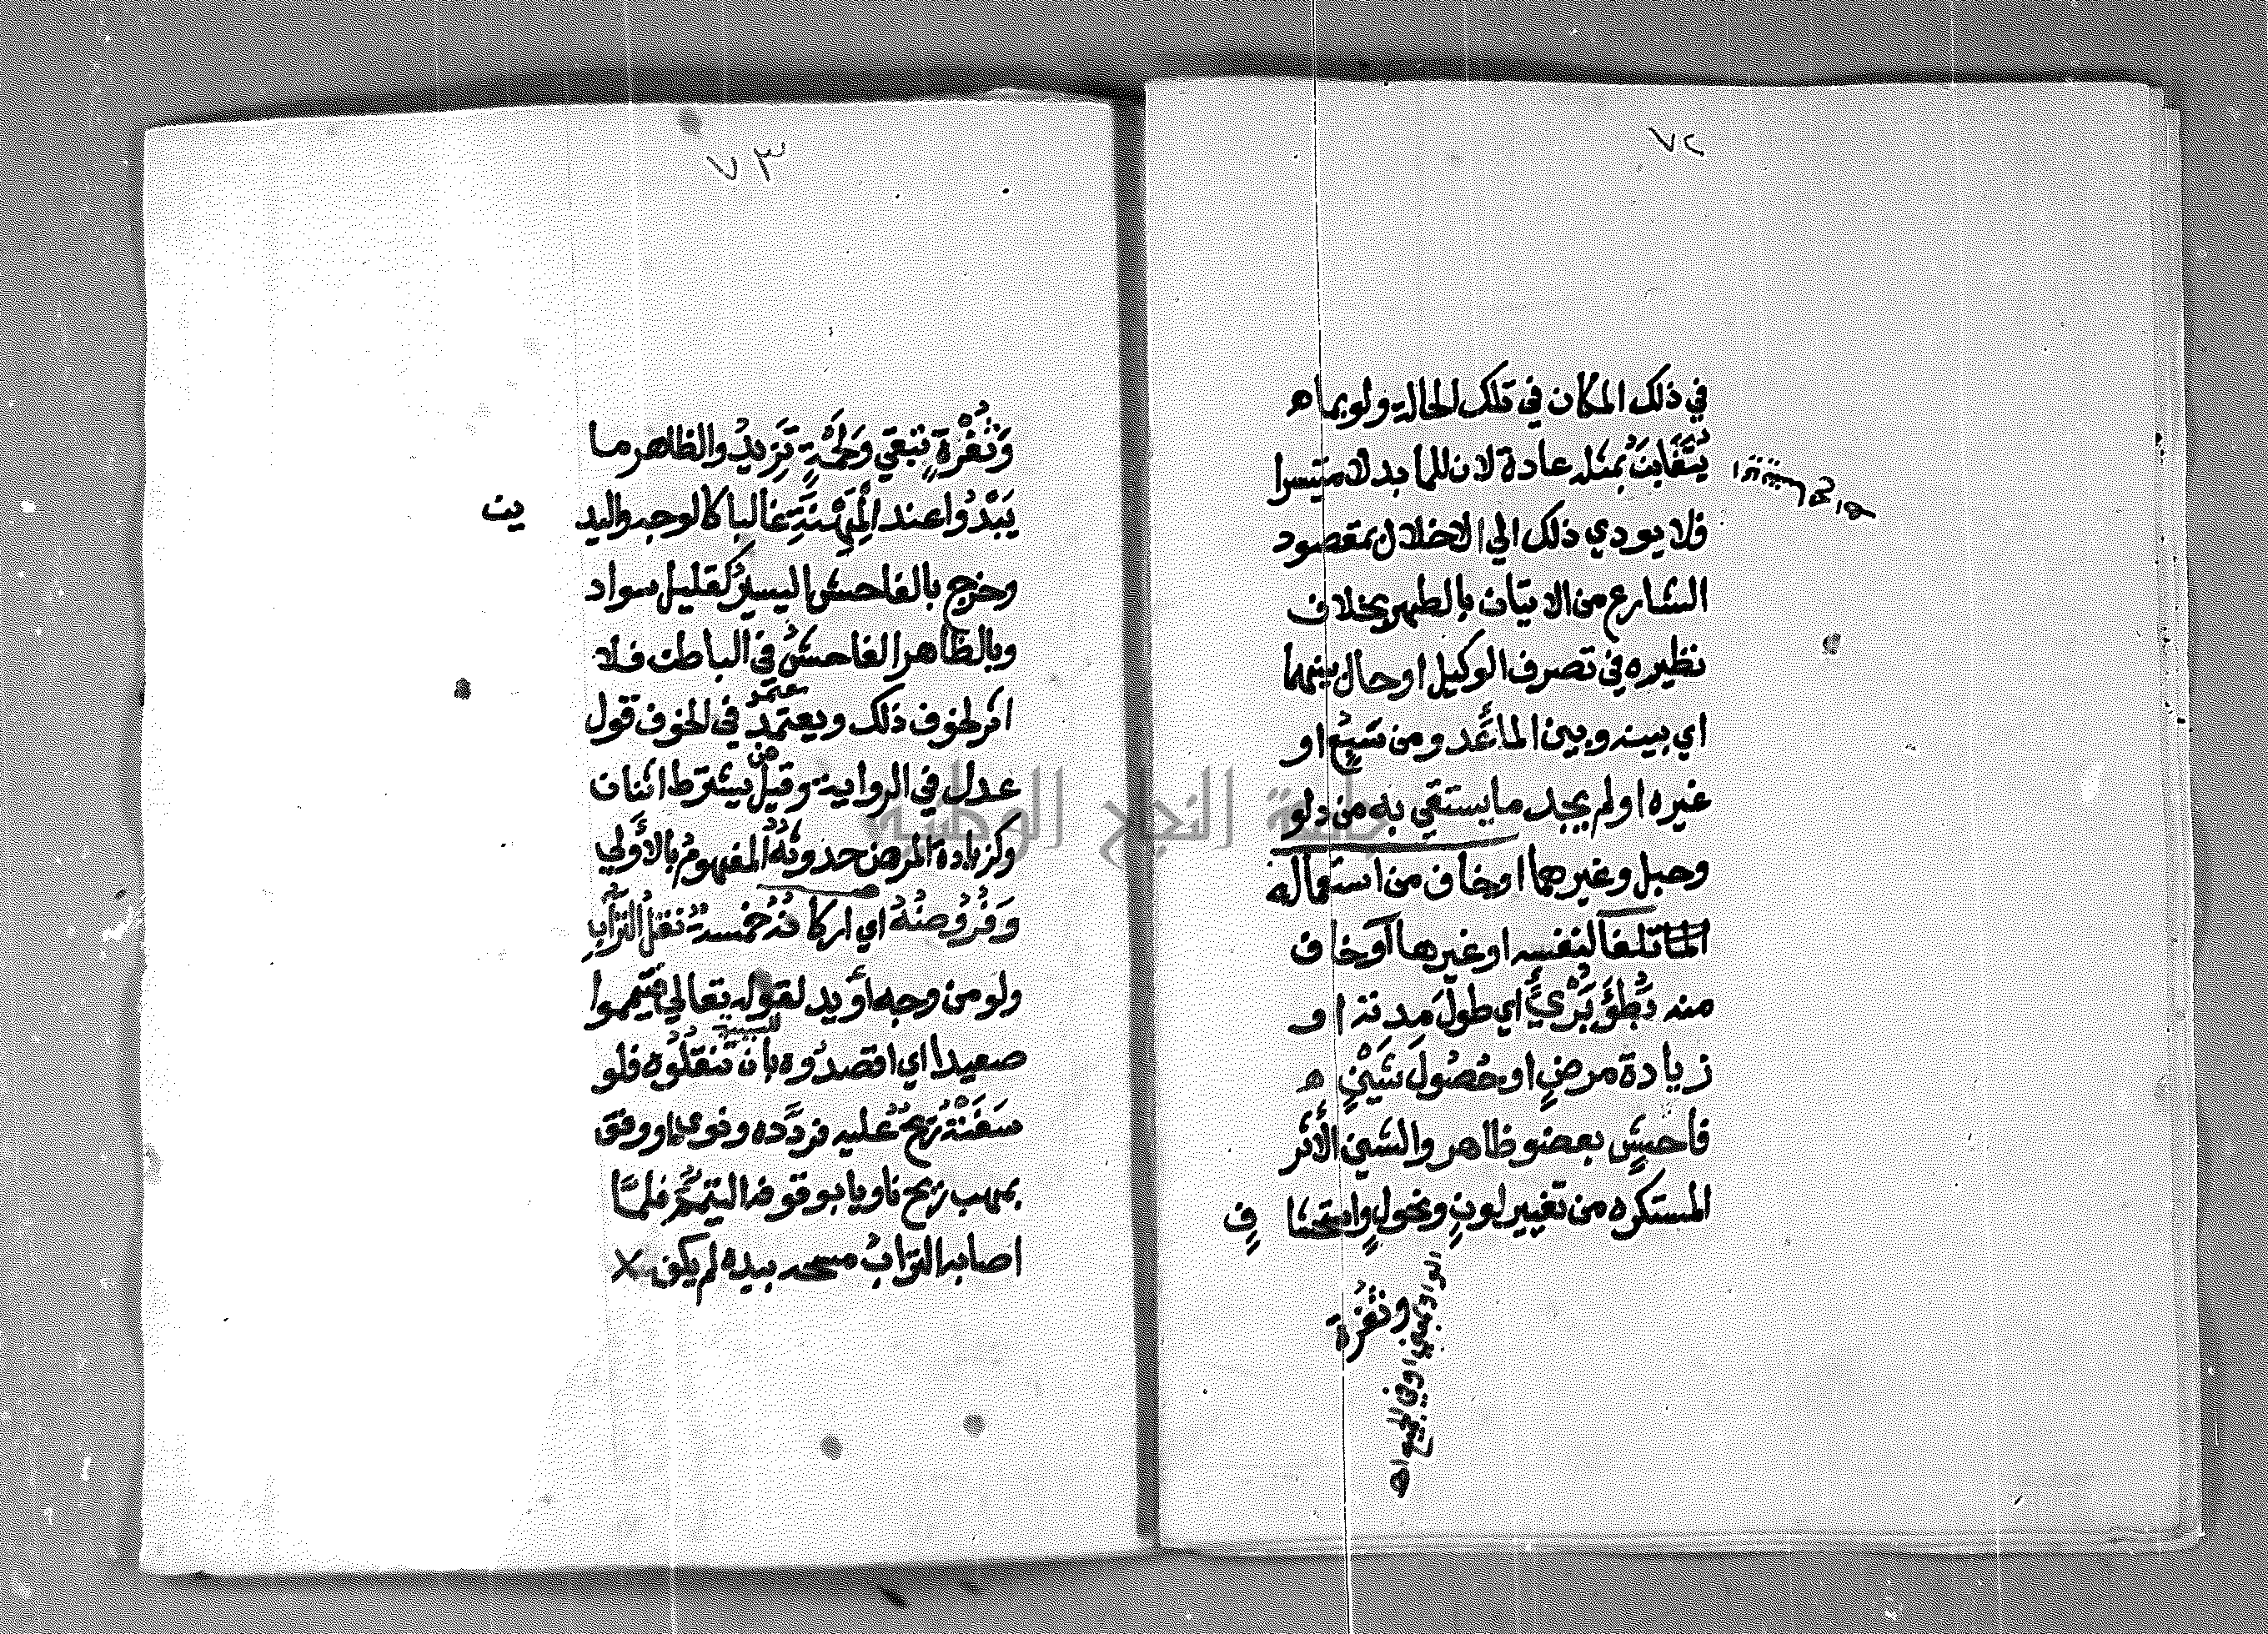 ٧٢
في ذلك المكان في تلك الحالة ولو بما ه
يُتَغَابَنُ بمثله عادة لان للما بدلا متيسرا
فلا يودي ذلك الي الاخلال بمقصود
الشارع من الاتيان بالطهر بخلاف
نظيره في تصرف الوكيل او حال بينهما
اي بينه وبين الما عَدو من سَبُع او
غيره او لم يجد ما يستقي به من دلو
وحبل وغيرهما او خاف من استعماله
تلفا لنفسه او غيرها او خاف
منه بُطْؤَ بَرْيٍ اي طولَ مدته او
زيادة مرضٍ او حُصُولَ شَيْنٍ ه
فاحشٍ بعضو ظاهر والشين الأثر
المستكره من تغيير لونٍ ونحولٍ واستحشا فٍ
وثُغْرة
٧٣
وَثُغْرَةٍ تبقي وَلَحْمَةٍ تَزيدُ والظاهر ما
يَبْدُوا عند الْمِهْنَةِ غالبا كالوجه واليد ين
وخرج بالفاحش اليسيرُ كقليل سواد
وبالظاهر الفاحشُ في الباطن فلا
اثر لخوف ذلك ويعتمد في الخوف قول
عدل في الرواية وقيل يشترط اثنان
وكزيادة المرض حدوثُهُ المفهومُ بالأَولي
وَفُرُوضُهُ اي اركانُهُ خمسةٌ نقلُ الترابِ
ولو من وجه أو يد لقوله تعالي فتيمموا
صعيدا اي اقصدُوه بأن تنقلُوه فلو
سَفَتْهُ رِيحٌ عليه فردَّده ونوي او وقف
بمهب ريح ناويا بوقوفه التيممَ فلمَّا
اصابه الترابُ مسحه بيده لم يكف